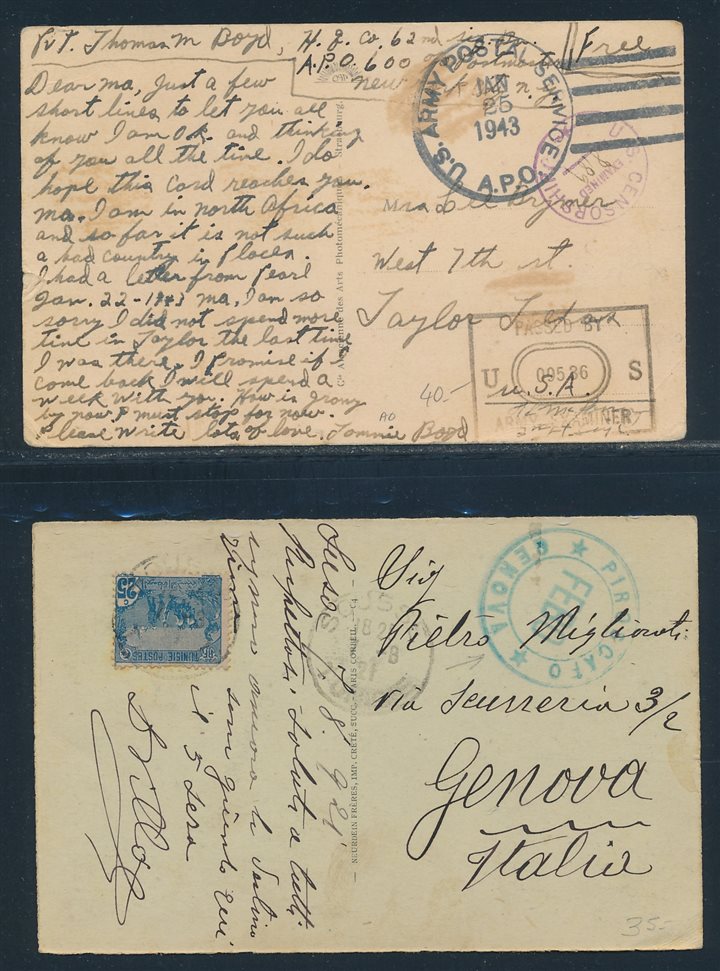 Pvt. Thomas M Boyd, H.Q. Co. 62nd Sig. Bn.
A.P.O. 600 Postmaster
New York N.Y.
Free
Dear ma, Just a few
short lines to let you all
know I am O.K. and thinking
of you all the time. I do
hope this Card reaches you.
ma. I am in north Africa
and so far it is not such
a bad country in places.
I had a letter from Pearl
Jan. 22-1943 ma, I am so
sorry I did not spend more
time in Taylor the last time
I was there. I promise if I
come back I will spend a
week with you. How is
by now I must stop for now.
Please write lots of love. Tommie Boyd
U.S. ARMY POSTAL SERVICE
JAN
25
1943
A.P.O.
U.S. CENSORSHIP
EXAMINED
Mrs. Bryner
West 7th st.
Taylor Texas
U.S.A.
PASSED BY
U 09536 S
ARMY EXAMINER
40.-
AO
Cie Alsacienne des Arts Photomécaniques, Strasbourg.
25c
TUNISIE POSTES
Susa, 7. 8. 921
Rispettosi saluti a tutti
siamo giunti qui
il 5 sera
NEURDEIN FRÈRES, IMP. CRÉTÉ, SUCC., PARIS CORBEIL
PIROSCAFO
GENOVA
FEB
Sig
Pietro
Via Scurreria 3/2
Genova
Italia
35-